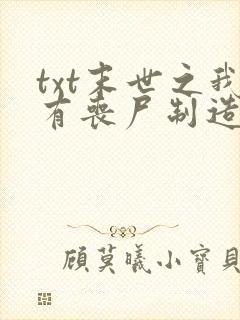 txt末世之我
有丧尸制造
顾莫曦小宝贝